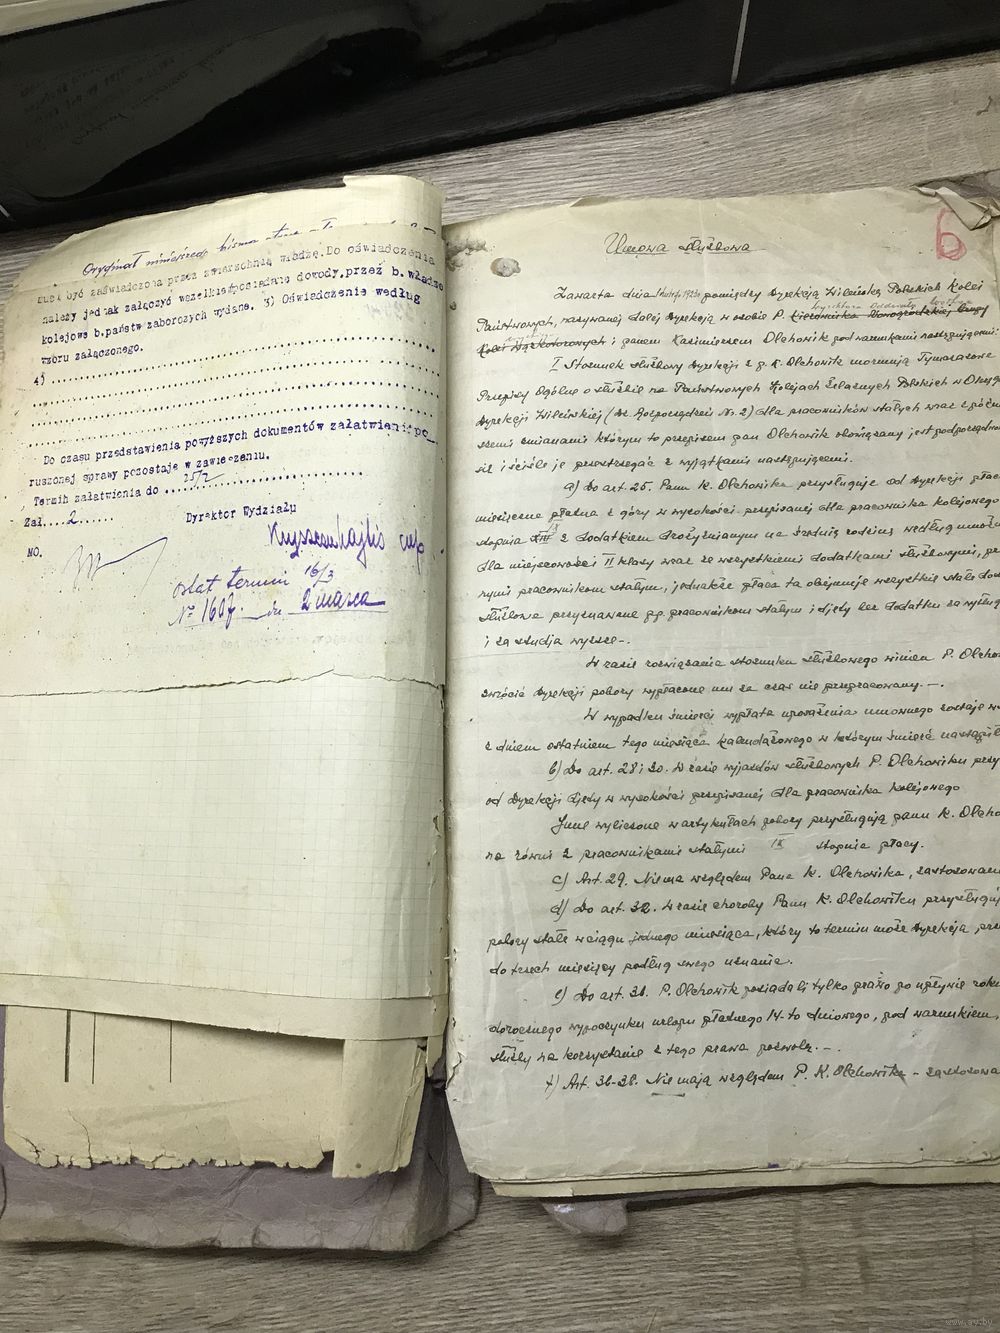 Oryginał niniejszego pisma
musi być zaświadczona przez zwierzchnią władzę. Do oświadczenia
należy jednak załączyć wszelkie posiadane dowody, przez b. władze
kolejowe b. państw zaborczych wydane. 3) Oświadczenie według
wzoru załączonego.
4)
Do czasu przedstawienia powyższych dokumentów załatwienie po-
ruszonej sprawy pozostaje w zawieszeniu.
Termin załatwienia do 25/2
Zał....2......
Dyrektor Wydziału
NO.
Ostat termin 16/3
№ 1607 2 marca
6
Umowa służbowa
Zawarta dnia 1923 pomiędzy Dyrekcją Wileńską Polskich Kolei
Państwowych, nazywanej dalej Dyrekcją w osobie P. Kierownika
Kolei Wązkotorowych i panem Kazimierzem Olchowik pod warunkami następującemi:
I Stosunek służbowy Dyrekcji z p. K. Olchowik normują Tymczasowe
Przepisy Ogólne o służbie na Państwowych Kolejach Żelaznych Polskich w Okręgu
Dyrekcji Wileńskiej (Dz. Rozporządzeń № 2) dla pracowników stałych wraz z późn
szemi zmianami którym to przepisem pan Olchowik obowiązany jest podporządkow
się i ściśle je przestrzegać z wyjątkami następującemi.
a) Do art. 25. Panu K. Olchowiku przysługuje od Dyrekcji płac
miesięczna płatna z góry w wysokości przepisanej dla pracownika kolejowego
stopnia IX z dodatkiem drożyźnianym na średnią rodzinę według mnożn
dla miejscowości II klasy wraz ze wszystkiemi dodatkami służbowymi, prz
nymi pracownikom stałym, jednakże płaca ta obejmuje wszystkie stałe dod
służbowe przyznawane p.p. pracownikom stałym i djety bez dodatku za wysług
i za studja wyższe-.
W razie rozwiązania stosunku służbowego winien P. Olcho
zwrócić Dyrekcji pobory wypłacone mu za czas nie przepracowany.-.
W wypadku śmierci wypłata uposażenia umownego zostaje w
z dniem ostatniem tego miesiąca kalendażowego w którym śmierć nastąpił
b) Do art. 28 i 30. W razie wyjazdów służbowych P. Olchowiku przy
od Dyrekcji djety w wysokości przepisanej dla pracownika kolejowego
Inne wyliczone w artykułach pobory przysługują panu K. Olcho
na równi z pracownikami stałymi IX stopnia płacy.
c) Art. 29. Nie ma względem Pana K. Olchowika, zastosowan
d) Do art. 32. W razie choroby Panu K. Olchowiku przysługuj
pobory stałe w ciągu jednego miesiąca, który to termin może Dyrekcja prz
do trzech miesięcy podług swego uznania.
e) Do art. 31. P. Olchowik posiada li tylko prawo po upływie roku
dorocznego wypoczynku urlopu płatnego 14-to dniowego, pod warunkiem,
służby na korzystanie z tego prawa pozwolą.-.
f) Art. 36-38. Nie mają względem P. K. Olchowika - zastosowa
www.ay.by